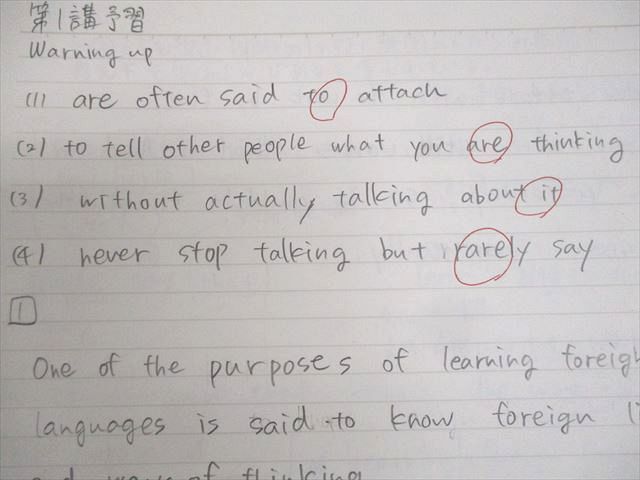 第1講予習
Warning up
(1) are often said to attach
(2) to tell other people what you are thinking
(3) without actually talking about it
(4) never stop talking but rarely say
1
One of the purposes of learning foreign
languages is said to know foreign
of thinking